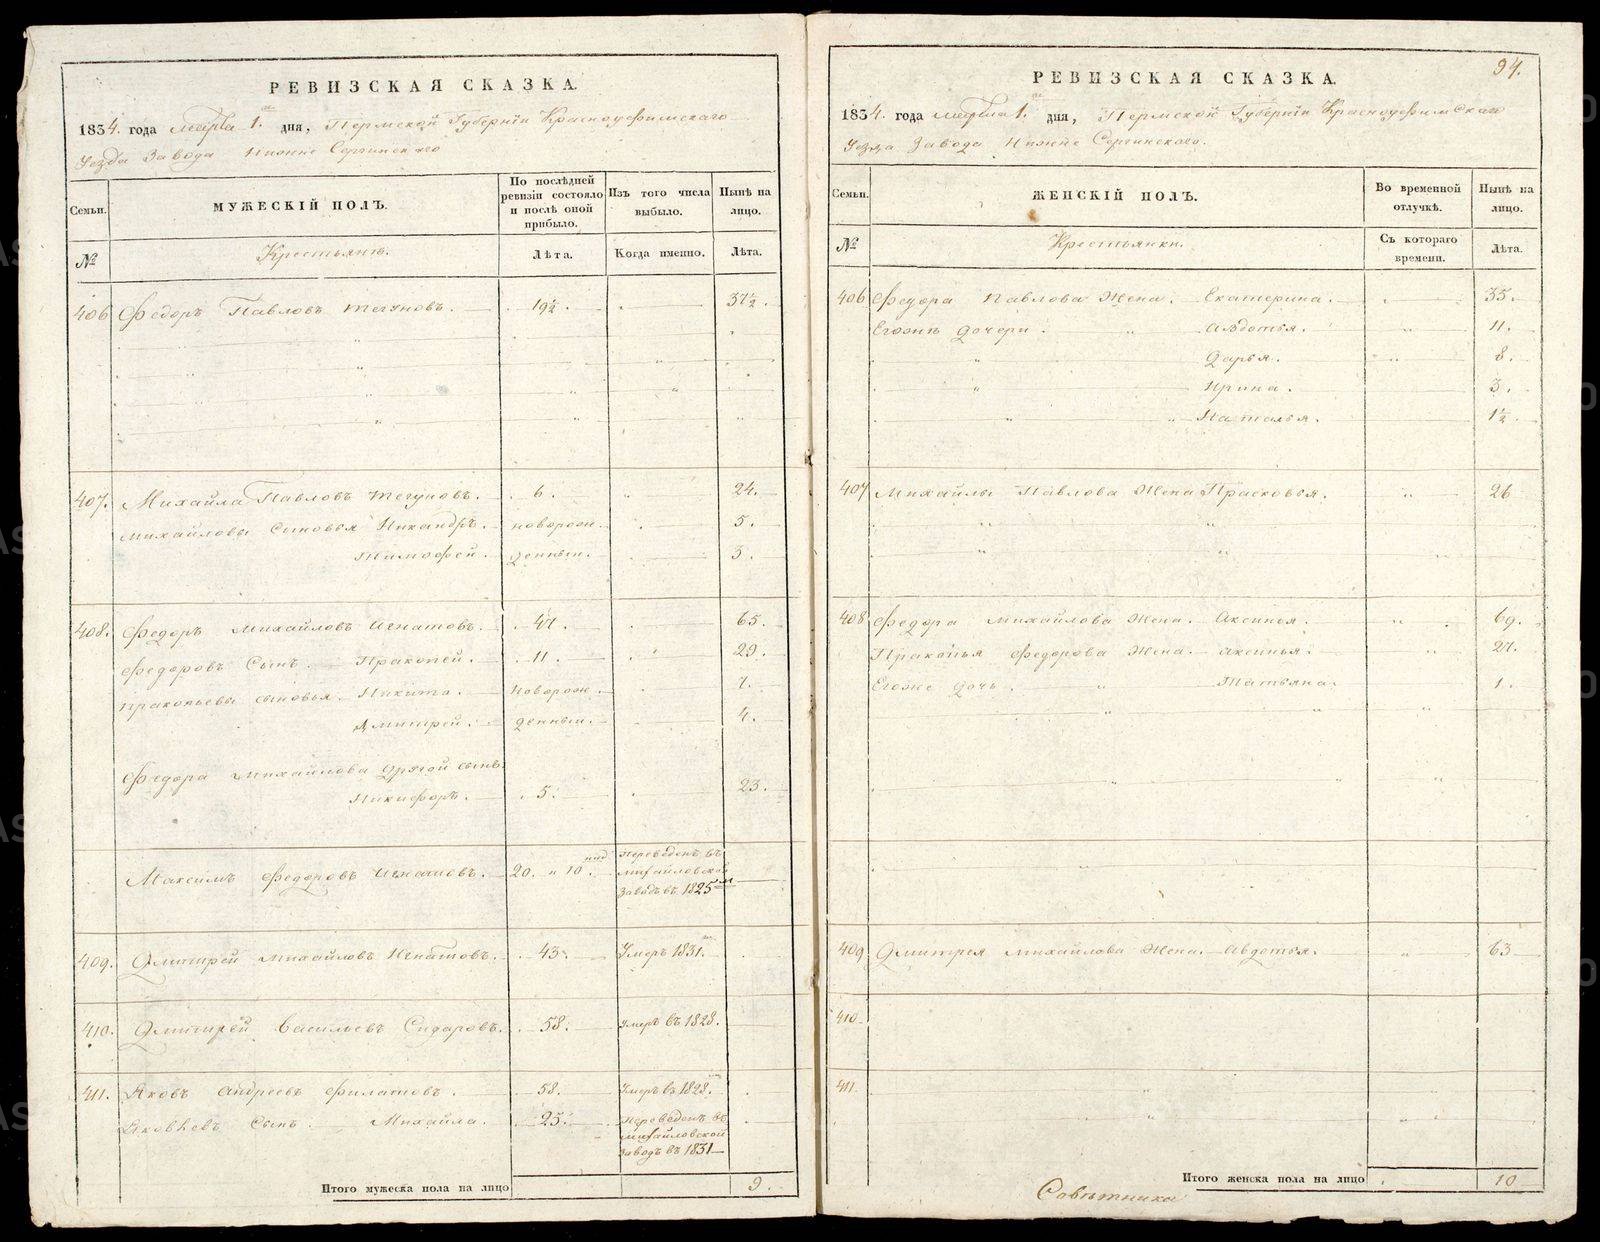 РЕВИЗСКАЯ СКАЗКА.
1834. года Марта 1. дня, Пермской Губернiи Красноуфимскаго
Уезда Завода Нижне Сергинскаго
Семьи. МУЖЕСКIЙ ПОЛЪ. По послѣдней ревизiи состояло и послѣ оной прибыло. Изъ того числа выбыло. Нынѣ на лицо.
№ Крестьянъ. Лѣта. Когда именно. Лѣта.
406 Федоръ Павловъ Тегуновъ. 19½. 37½.
407. Михайла Павловъ Тегуновъ. 6. 24.
Михайловы сыновья Никандръ. новорож. 5.
Тимофей. денныи. 3.
408. Федоръ Михайловъ Игнатовъ. 47. 65.
Федоровъ Сынъ. Пракопей. 11. 29.
Пракопьевы сыновья. Никита. новорож. 7.
Дмитрей. денныи. 4.
Федора Михайлова другой сынъ.
Никифоръ. 5. 23.
Максимъ Федоровъ Игнатовъ. 20. и 10.
Переведенъ въ
Михайловской
Заводъ въ 1825
409. Дмитрей Михайловъ Игнатовъ. 43. Умеръ 1831.
410. Дмитрей Васильевъ Сидаровъ. 58. Умеръ въ 1828.
411. Яковъ Андреевъ Филатовъ. 58. Умеръ въ 1828.
Яковлевъ Сынъ. Михайла. 25.
Переведенъ въ
Михайловской
Заводъ въ 1831
Итого мужеска пола на лицо 9.
94.
РЕВИЗСКАЯ СКАЗКА.
1834. года Марта 1. дня, Пермской Губернiи Красноуфимскаго
Уезда Завода Нижне Сергинскаго.
Семьи. ЖЕНСКIЙ ПОЛЪ. Во временной отлучкѣ. Нынѣ на лицо.
№ Крестьянки. Съ котораго времени. Лѣта.
406 Федора Павлова Жена. Екатерина. 35.
Егожъ дочери. Авдотья. 11.
Дарья. 8.
Ирина. 3.
Наталья. 1½.
407 Михайлы Павлова Жена Прасковья. 26
408 Федора Михайлова Жена. Аксинья. 69.
Пракопья Федорова Жена. Аксинья. 27.
Егоже дочь. Татьяна. 1.
409 Дмитрея Михайлова Жена. Авдотья. 63
410.
411.
Итого женска пола на лицо 10
Совѣтника